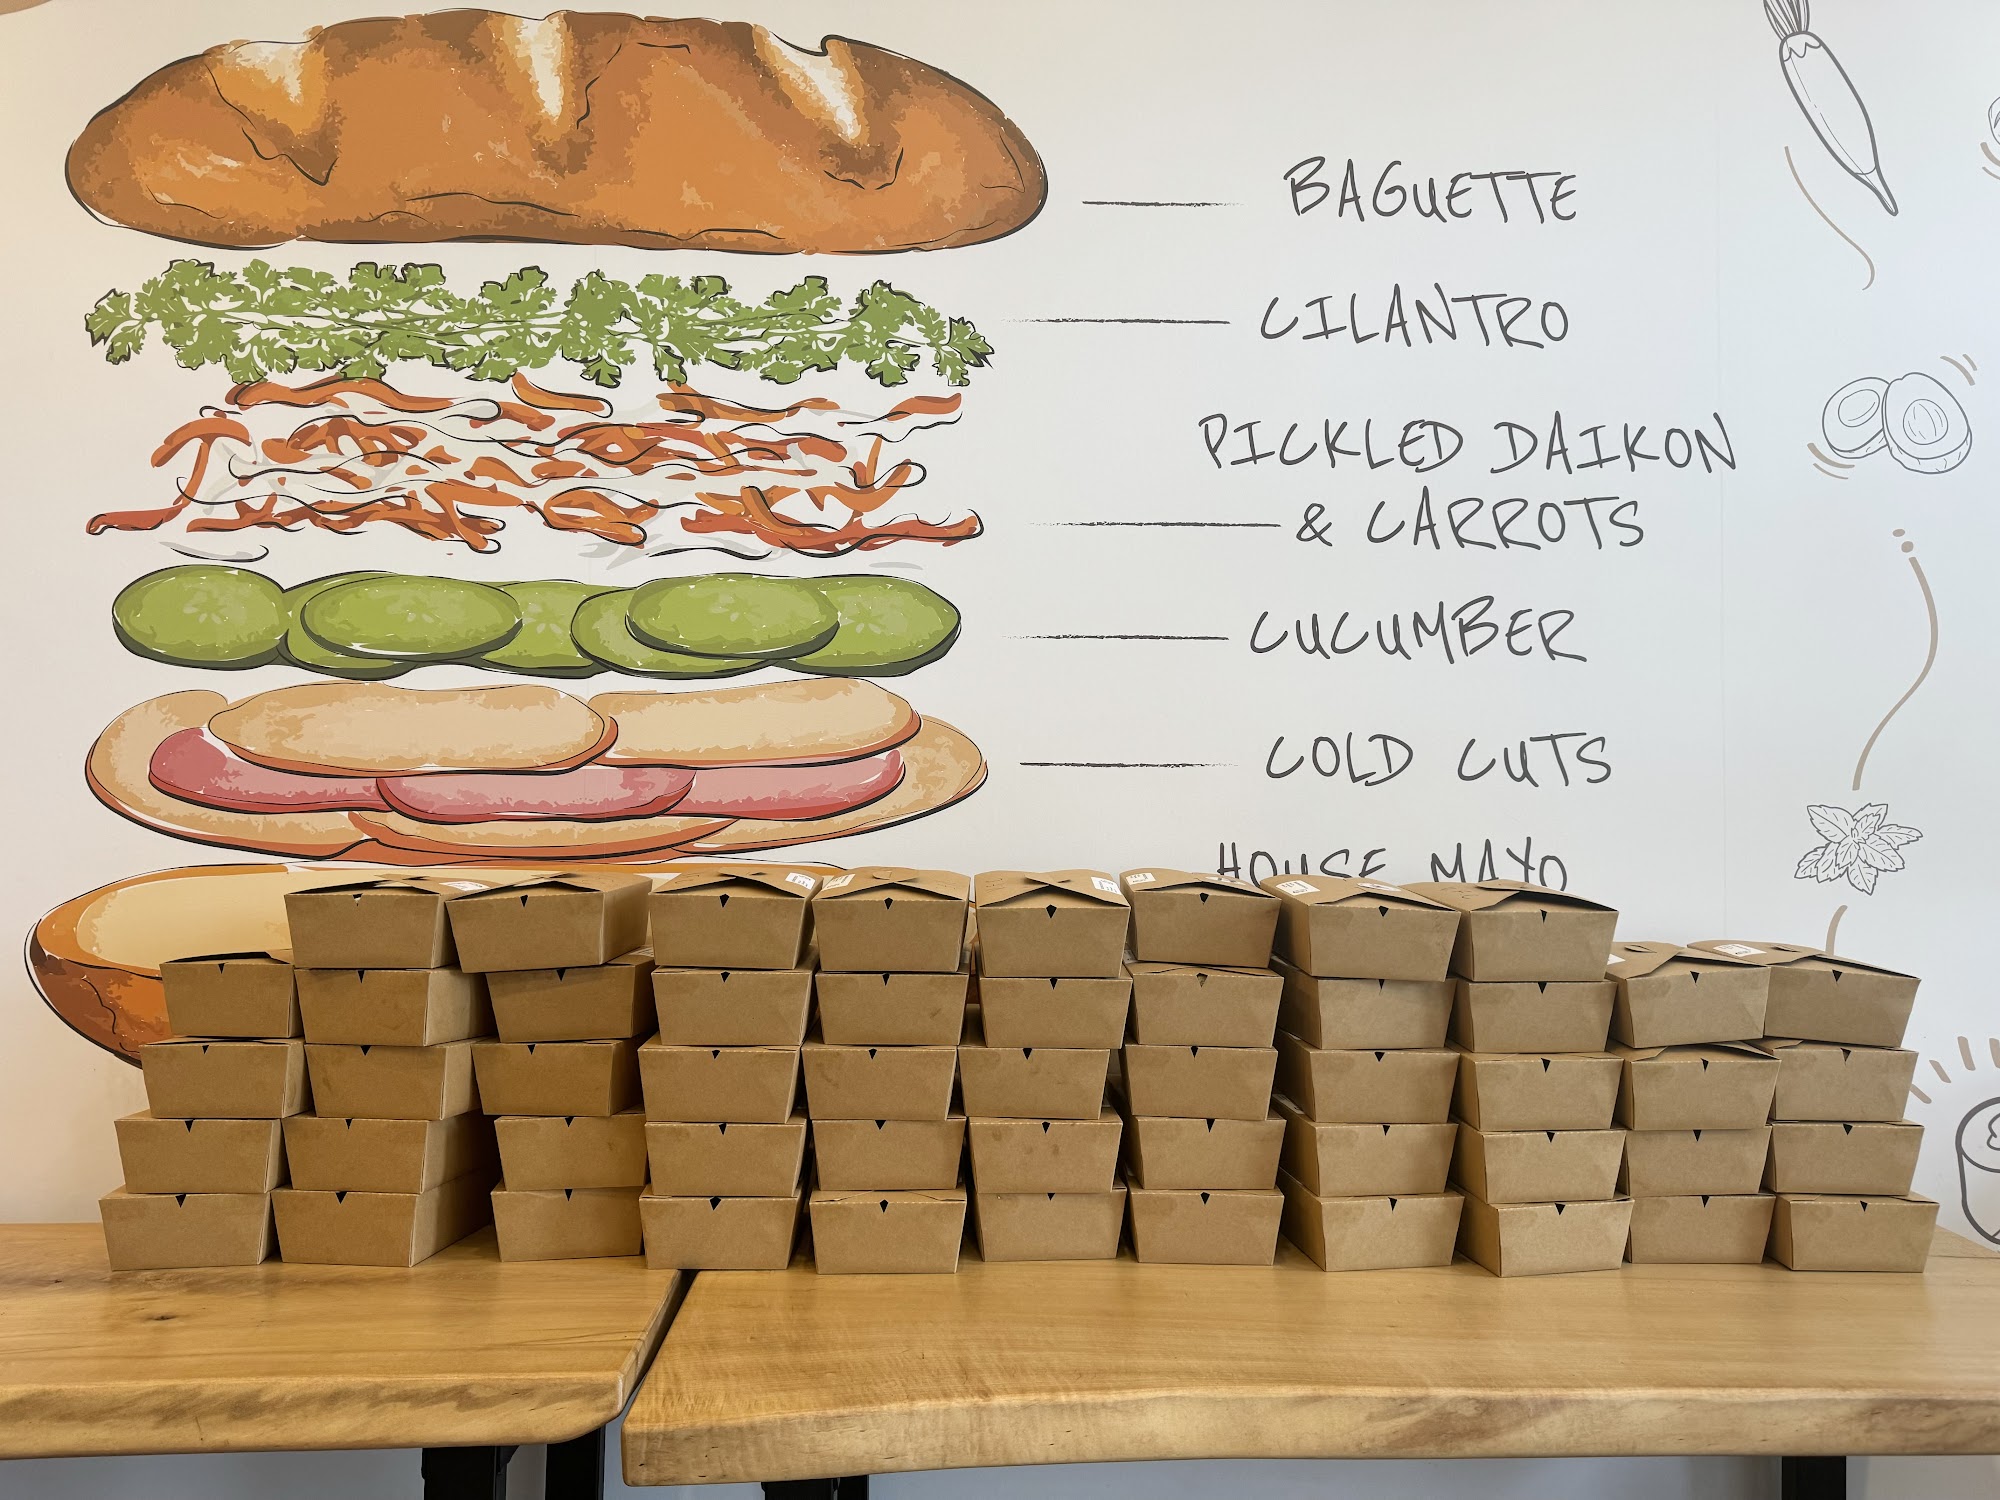 BAGUETTE
CILANTRO
PICKLED DAIKON
& CARROTS
CUCUMBER
COLD CUTS
HOUSE MAYO